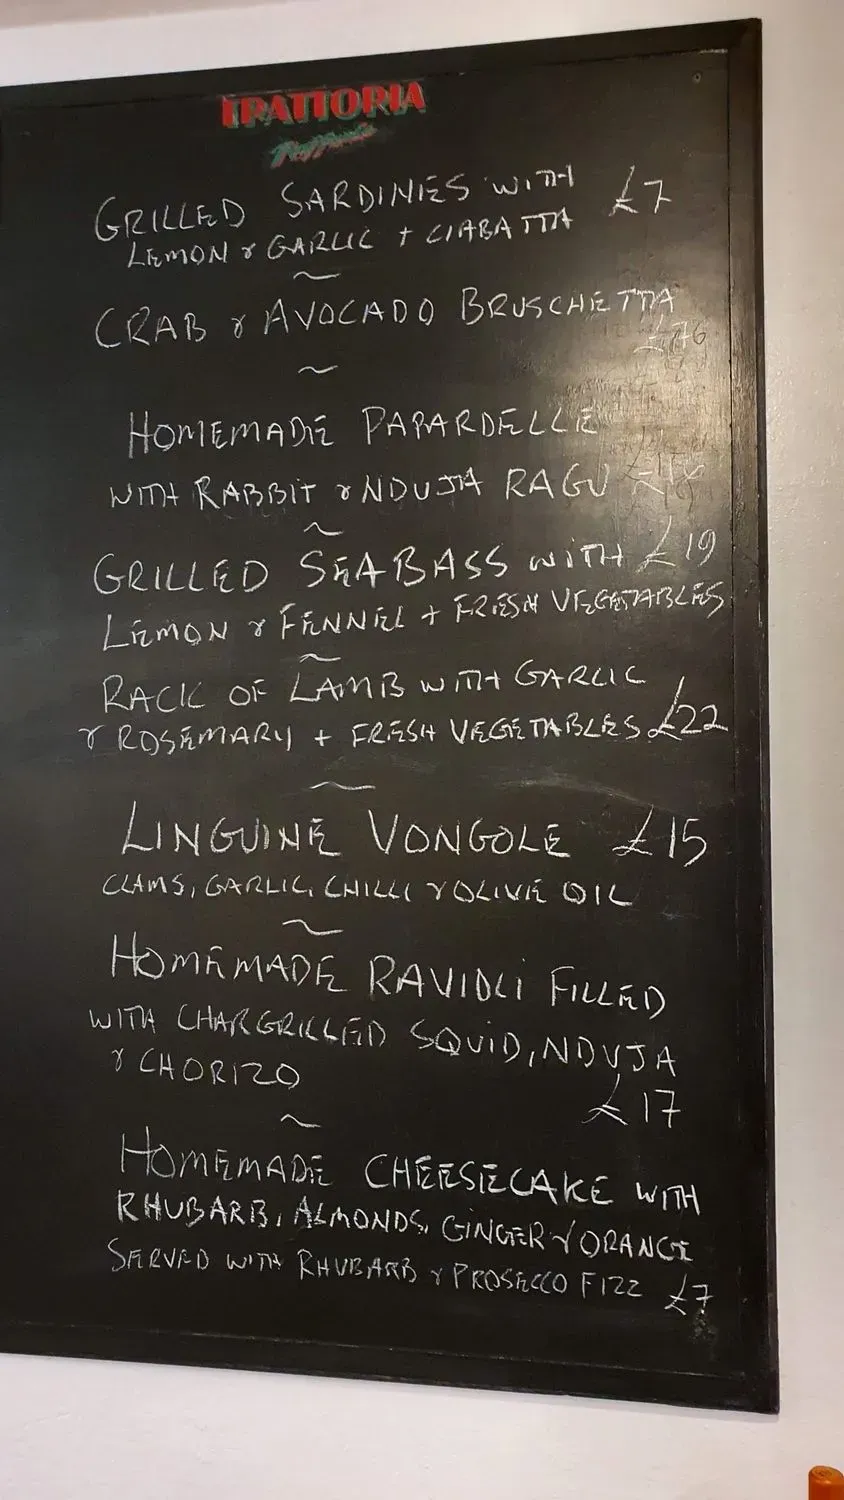 TRATTORIA
GRILLED SARDINIES WITH £7
LEMON & GARLIC + CIABATTA
~
CRAB & AVOCADO BRUSCHETTA
~
HOMEMADE PAPARDELLE
WITH RABBIT & NDUJA RAGU
~
GRILLED SEABASS WITH £19
LEMON & FENNEL + FRESH VEGETABLES
~
RACK OF LAMB WITH GARLIC
& ROSEMARY + FRESH VEGETABLES £22
~
LINGUINE VONGOLE £15
CLAMS, GARLIC, CHILLI & OLIVE OIL
~
HOMEMADE RAVIOLI FILLED
WITH CHARGRILLED SQUID, NDUJA
& CHORIZO
£17
~
HOMEMADE CHEESECAKE WITH
RHUBARB, ALMONDS, GINGER & ORANGE
SERVED WITH RHUBARB & PROSECCO FIZZ £7